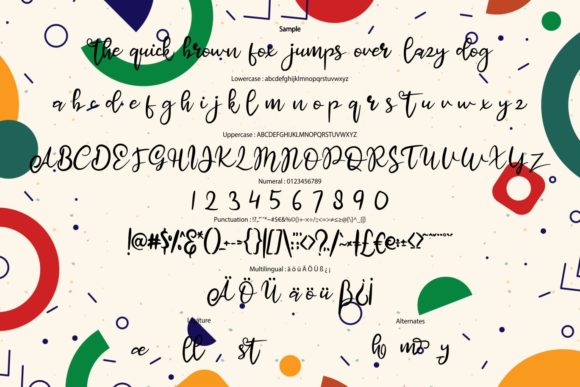 Sample
The quick brown fox jumps over lazy dog
Lowercase : abcdefghijklmnopqrstuvwxyz
a b c d e f g h i j k l m n o p q r s t u v w x y z
Uppercase : ABCDEFGHIJKLMNOPQRSTUVWXYZ
ABCDEFGHIJKLMNOPQRSTUVWXYZ
Numeral : 0123456789
1 2 3 4 5 6 7 8 9 0
Punctuation :
Multilingual : ä ö ü Ä Ö Ü ß ¿ ¡
Ä Ö Ü ä ö ü ß ¿ ¡
Alternates
æ ll st
h m y